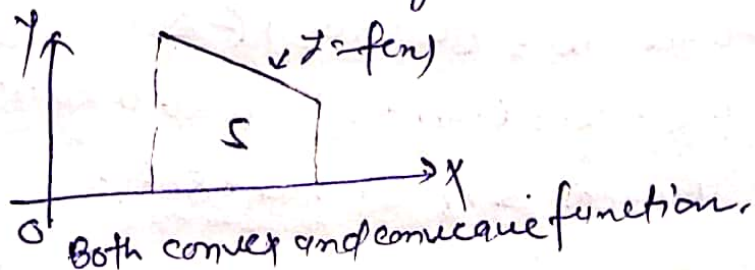 Y
y=f(x)
S
X
O
Both convex and concave function.